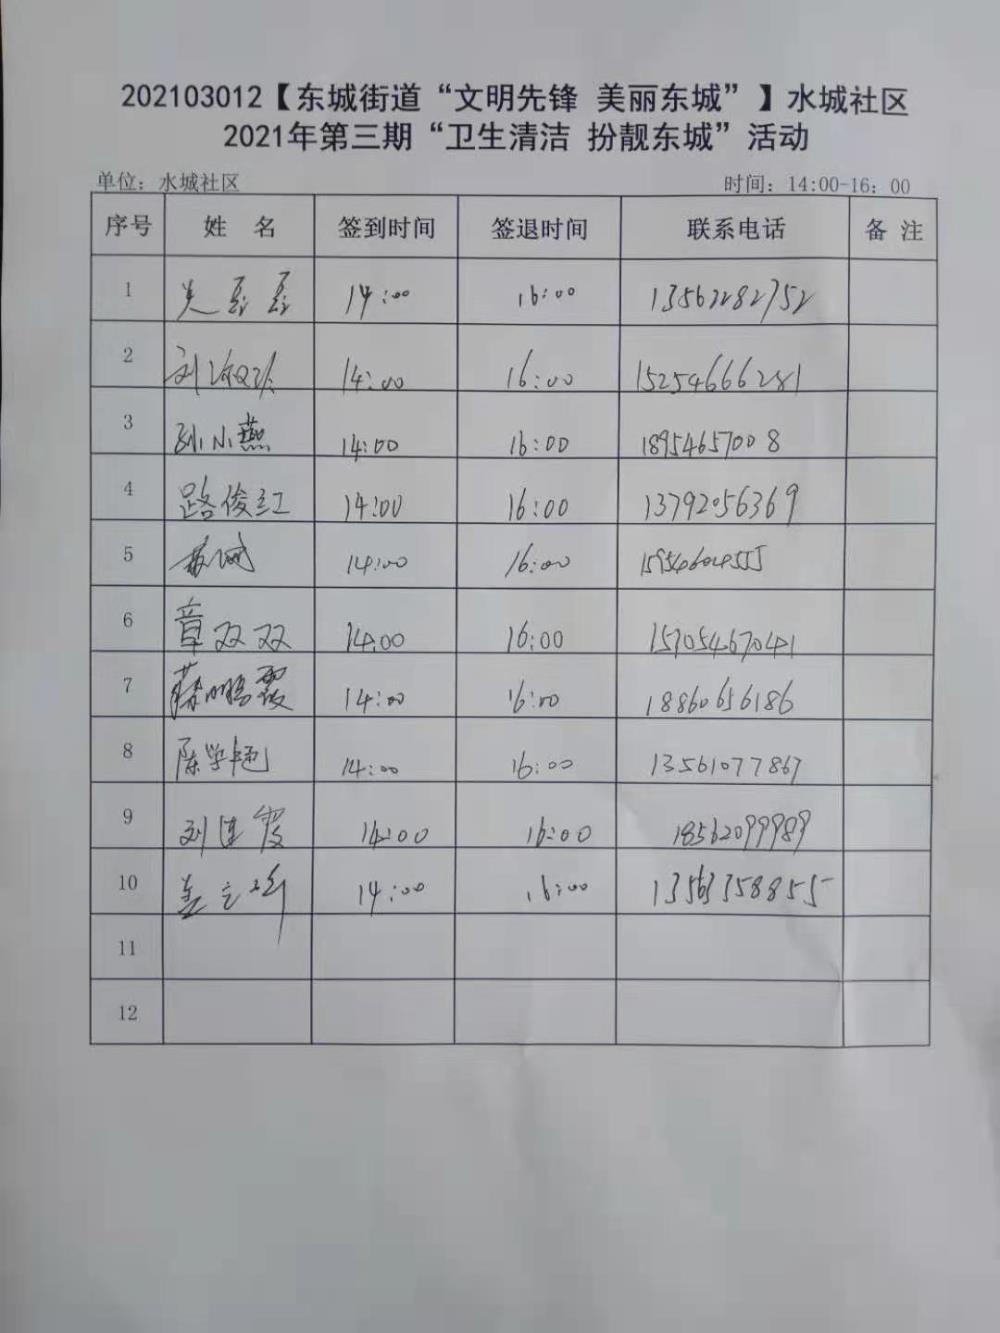 202103012【东城街道“文明先锋 美丽东城”】水城社区
2021年第三期“卫生清洁 扮靓东城”活动
单位：水城社区 时间：14:00-16：00
序号 姓 名 签到时间 签退时间 联系电话 备 注
1 14:00 16:00 13562282752
2 14:00 16:00 15254666281
3 孙小燕 14:00 16:00 18954657008
4 路俊红 14:00 16:00 13792056369
5 14:00 16:00 15954604555
6 章双双 14:00 16:00 15705467041
7 薛鹏霞 14:00 16:00 18860656186
8 陈学艳 14:00 16:00 13561077867
9 刘连霞 14:00 16:00 18562099989
10 14:00 16:00 13563358855
11
12